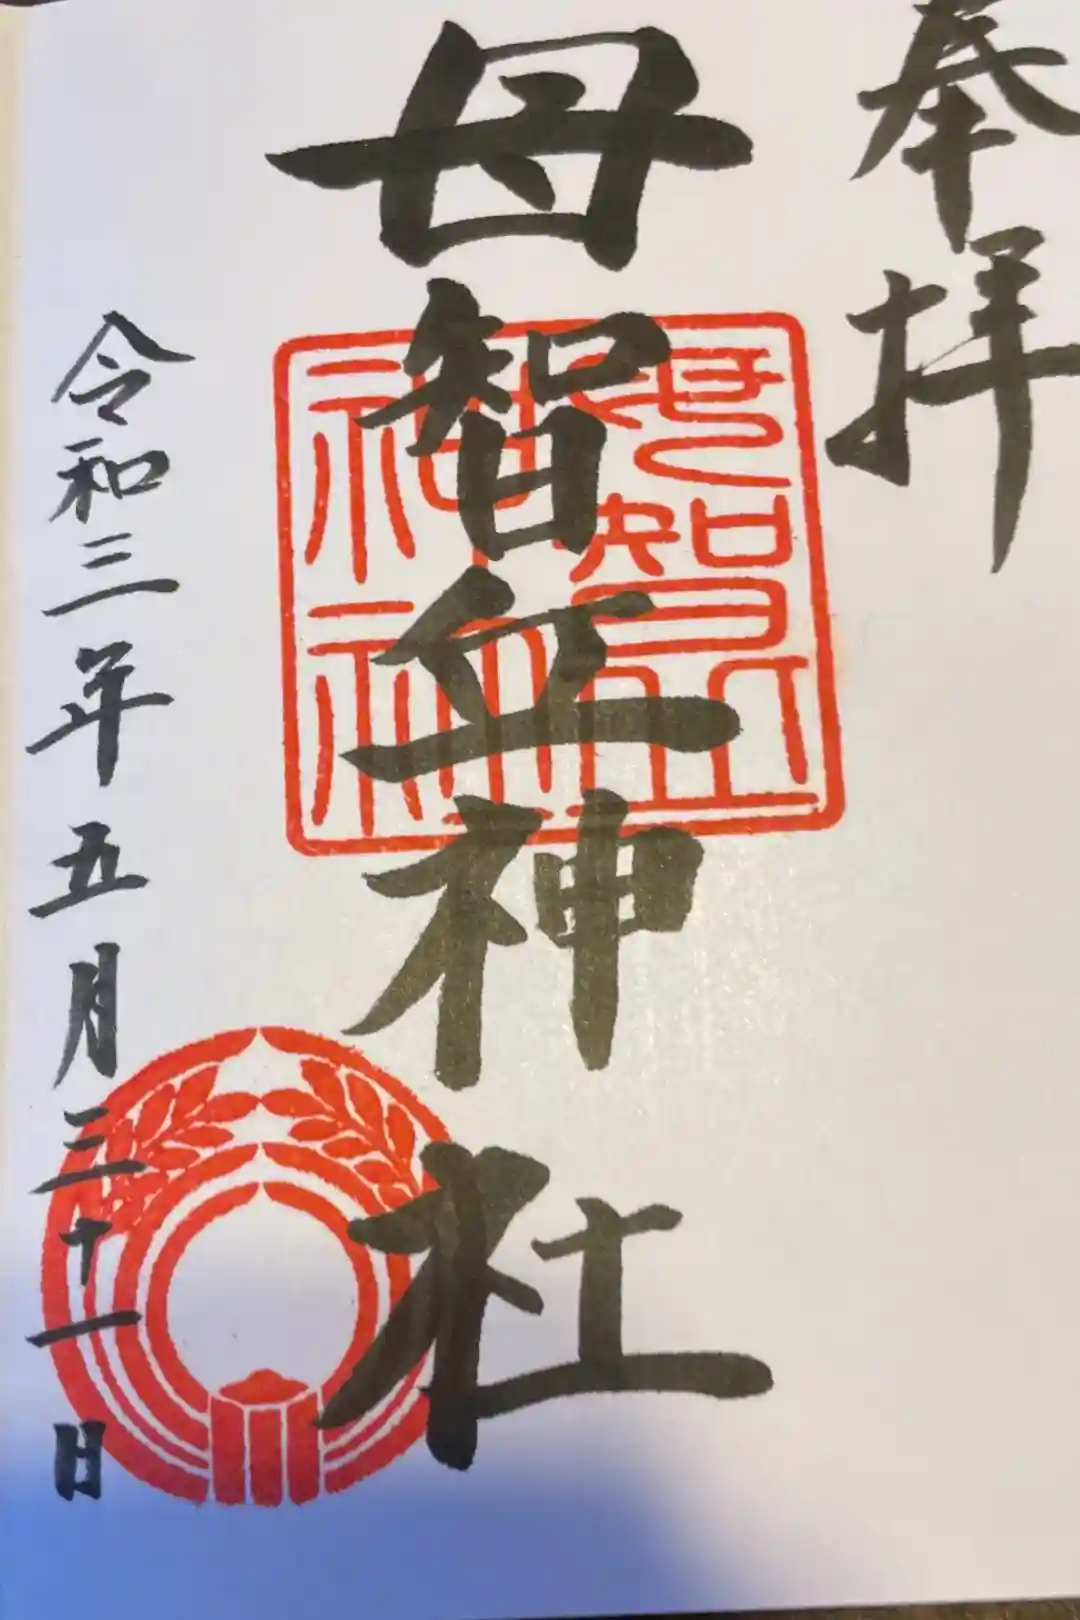 奉拝
母智丘神社
令和三年五月三十一日
母智丘
神社